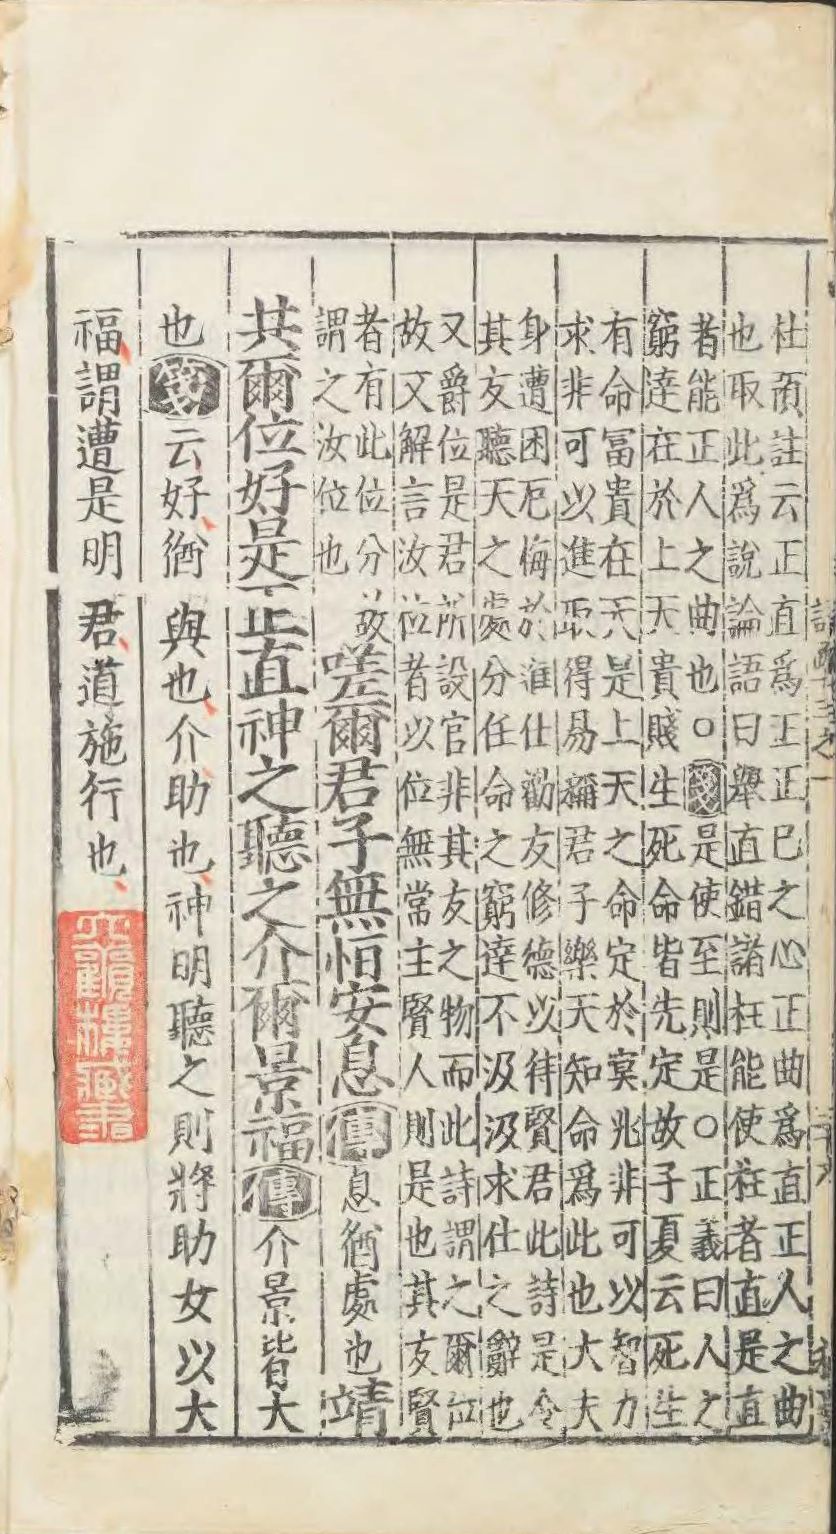 杜預註云正直爲正正已之心正曲爲直正人之曲
也取此爲說論語曰舉直錯諸枉能使枉者直是直
者能正人之曲也○箋是使至則是○正義曰人之
窮達在於上天貴賤生死命皆先定故子夏云死生
有命冨貴在天是上天之命定於冥兆非可以智力
求非可以進取得易稱君子樂天知命爲此也大夫
身遭困厄悔於進仕勸友修德以待賢君此詩是令
其友聽天之處分任命之窮達不汲汲求仕之辭也
又爵位是君所設官非其友之物而此詩謂之爾位
故又解言汝位者以位無常主賢人則是也其友賢
者有此位分故
謂之汝位也
嗟爾君子無恒安息傳息猶處也靖
共爾位好是正直神之聽之介爾景福傳介景皆大
也箋云好猶與也介助也神明聽之則將助女以大
福謂遭是明君道施行也